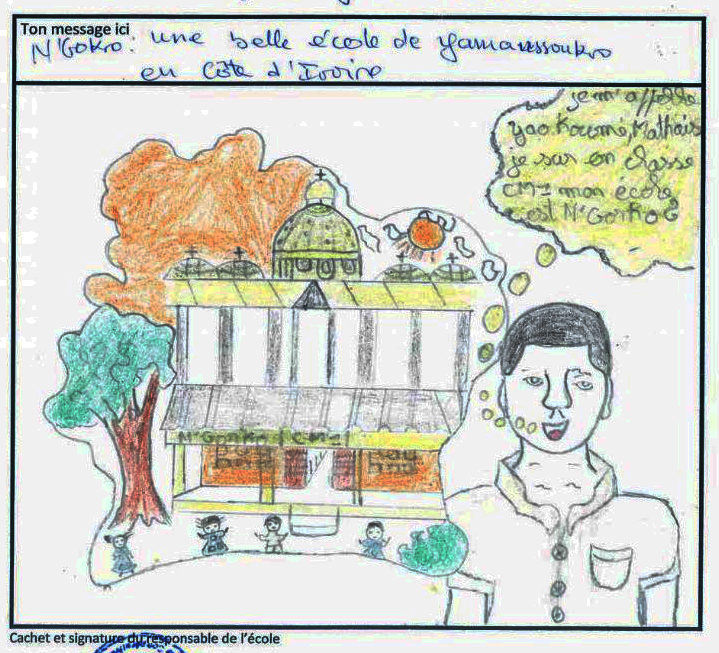 Ton message ici
N'Gokro: une belle école de Yamoussoukro
en Côte d'Ivoire
je m'appelle
yao Kouamé, Mathais
je suis en classe
CM2 mon école
c'est N'Gorko
N'Gorko CM2
Cachet et signature du responsable de l'école